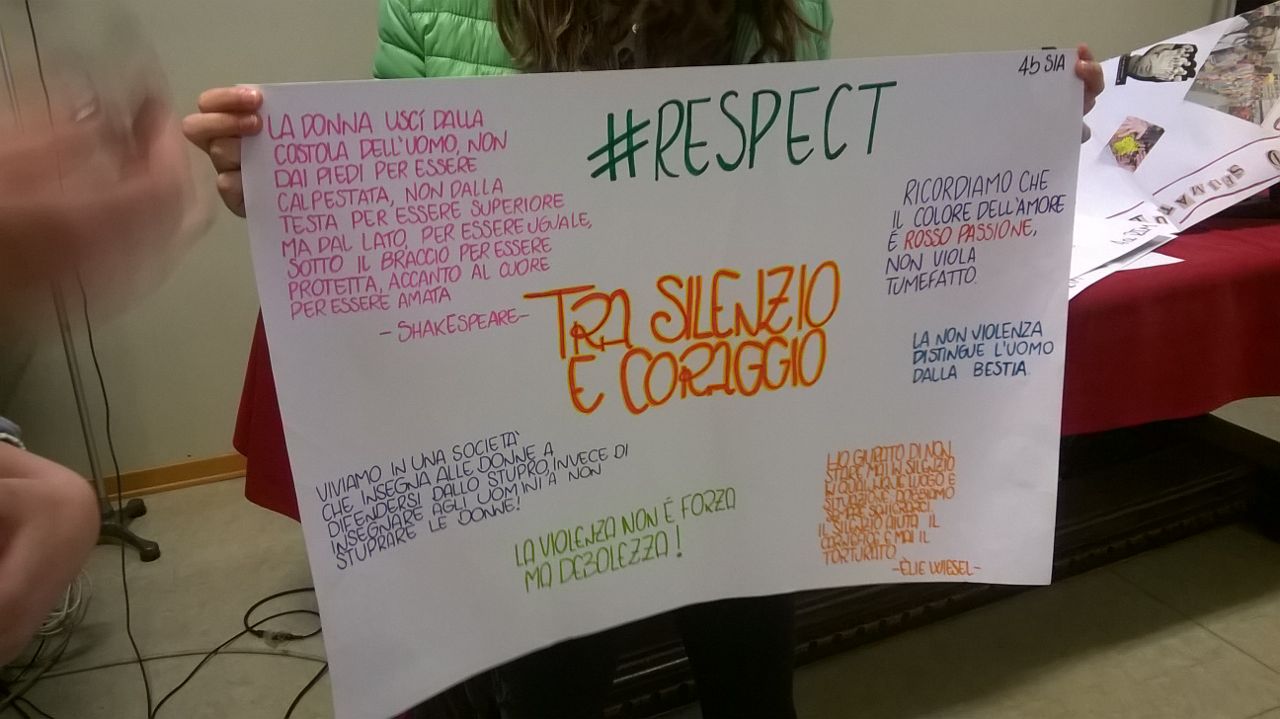 4b SIA
#RESPECT
LA DONNA USCÍ DALLA
COSTOLA DELL'UOMO, NON
DAI PIEDI PER ESSERE
CALPESTATA, NON DALLA
TESTA PER ESSERE SUPERIORE
MA DAL LATO, PER ESSERE UGUALE,
SOTTO IL BRACCIO PER ESSERE
PROTETTA, ACCANTO AL CUORE
PER ESSERE AMATA
- SHAKESPEARE -
RICORDIAMO CHE
IL COLORE DELL'AMORE
É ROSSO PASSIONE,
NON VIOLA
TUMEFATTO.
TRA SILENZIO
E CORAGGIO
LA NON VIOLENZA
DISTINGUE L'UOMO
DALLA BESTIA.
VIVIAMO IN UNA SOCIETA'
CHE INSEGNA ALLE DONNE A
DIFENDERSI DALLO STUPRO, INVECE DI
INSEGNARE AGLI UOMINI A NON
STUPRARE LE DONNE!
LA VIOLENZA NON É FORZA
MA DEBOLEZZA!
HO GIURATO DI NON
STARE MAI IN SILENZIO
IN QUALUNQUE LUOGO E
SITUAZIONE. DOBBIAMO
SEMPRE SCHIERARCI
IL SILENZIO AIUTA IL
CARNEFICE E MAI IL
TORTURATO
- ÈLIE WIESEL -